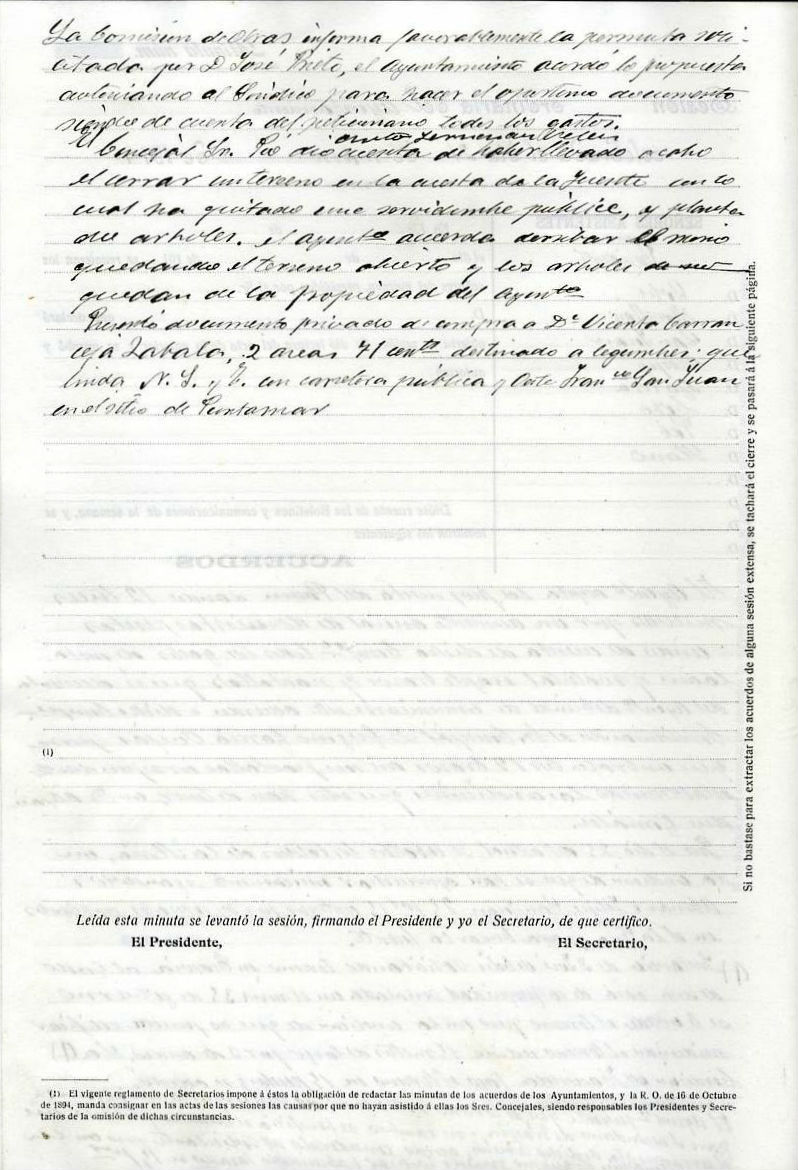 La Comisión de Obras informa favorablemente la permuta soli-
citada por D José Prieto, el ayuntamiento acordó lo propuesto
autorizando al Síndico para hacer el oportuno documento
siendo de cuenta del peticionario todos los gastos.
El Concejal Sr. dio cuenta de haber llevado a cabo
el cerrar un terreno en la cuesta de la Fuente con lo
cual ha quitado una servidumbre pública, y planta
de arboles. el aytº acuerda derribar el muro
quedando el terreno abierto y los arboles
quedan de la propiedad del Ayuntº
Presentó documento privado de compra a Dª Vicenta Carran
ceja Zabala, 2 areas 71 centª destinado a legumbres; que
linda N. S. y E. con carretera pública y Oeste Franco San Juan
en el sitio de Puntamar
(1)
Leída esta minuta se levantó la sesión, firmando el Presidente y yo el Secretario, de que certifico.
El Presidente, El Secretario,
(1) El vigente reglamento de Secretarios impone á éstos la obligación de redactar las minutas de los acuerdos de los Ayuntamientos, y la R. O. de 16 de Octubre
de 1894, manda consignar en las actas de las sesiones las causas por que no hayan asistido á ellas los Sres. Concejales, siendo responsables los Presidentes y Secre-
tarios de la omisión de dichas circunstancias.
Si no bastase para extractar los acuerdos de alguna sesión extensa, se tachará el cierre y se pasará á la siguiente página.